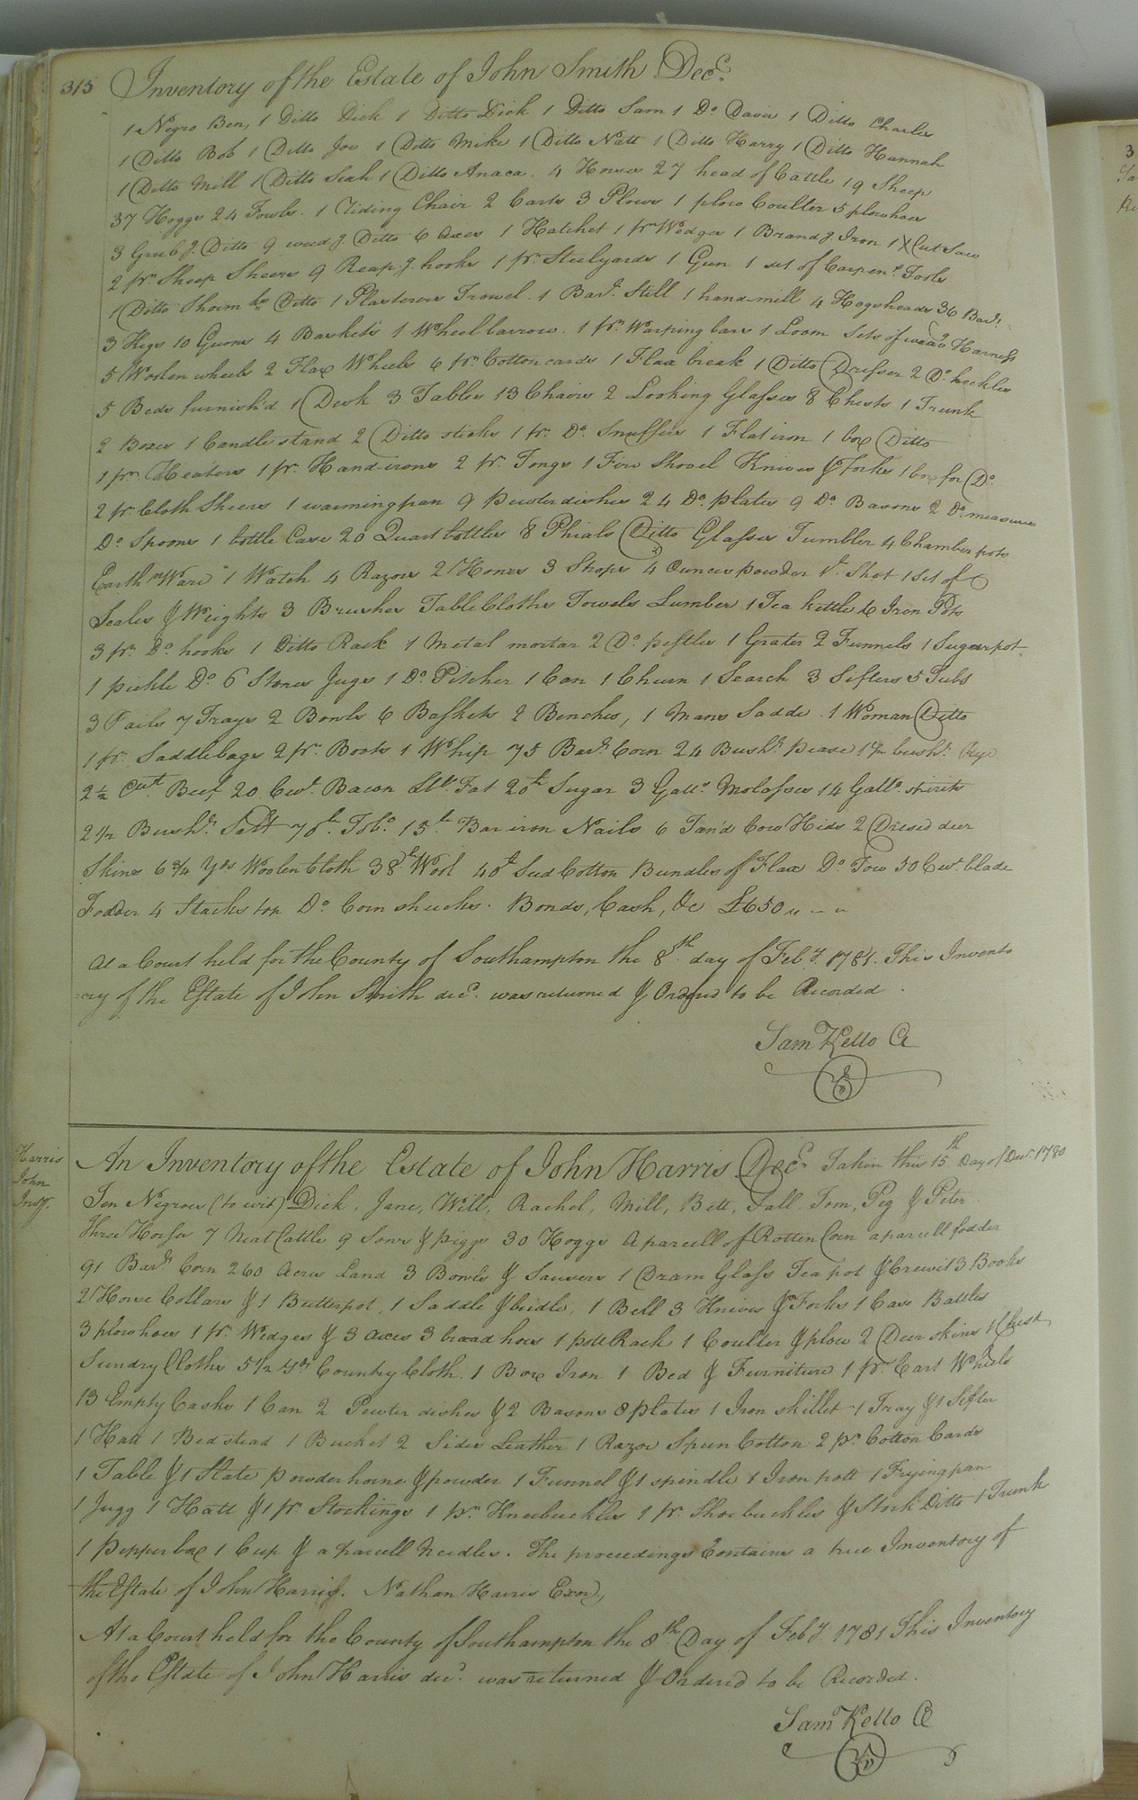 315 Inventory of the Estate of John Smith Decd.
1 Negro Ben, 1 Ditto Dick 1 Ditto Dick 1 Ditto Sam 1 Do Davie 1 Ditto Charles
1 Ditto Bob 1 Ditto Joe 1 Ditto Mike 1 Ditto Natt 1 Ditto Harry 1 Ditto Hannah
1 Ditto Mill 1 Ditto Leah 1 Ditto Anaca. 4 Horses 27 head of Cattle 19 Sheep
37 Hoggs 24 Fowls. 1 Riding Chair 2 Carts 3 Plows 1 plow Coulter 5 plowhoes
3 Grubg. Ditto 9 weedg. Ditto 6 Axes 1 Hatchet 1 pr Wedges 1 Brandg Iron 1 X Cut Saw
2 pr. Sheep Sheers 9 Reapg. hooks 1 pr. Steelyards 1 Gun 1 set of Carpenrs Tools
1 Ditto Shoemkrs Ditto 1 Plasterors Trowel. 1 Barl. Still 1 hand-mill 4 Hogsheads 36 Barls.
3 Kegs 10 Guons 4 Baskets 1 Wheelbarrow. 1 pr. Warping bars 1 Loom Sets of weavg Harness
5 Woolen wheels 2 Flax Wheels 6 pr. Cotton cards 1 Flax break 1 Ditto Dresser 2 Do. heckles
5 Beds furnish'd 1 Desk 3 Tables 13 Chairs 2 Looking Glasses 8 Chests 1 Trunk
2 Boxes 1 Candlestand 2 Ditto sticks 1 pr. Do. Snuffers 1 Flat iron 1 box Ditto
1 pr. Heaters 1 pr. Handirons 2 pr. Tongs 1 Fire Shovel Knives & forks 1 box for Do.
2 pr Cloth Sheers 1 warming pan 9 pewter dishes 24 Do. plates 9 Do. Basons 2 Do. measures
Do. Spoons 1 bottle Case 20 Quart bottles 8 Phials Ditto Glasses Tumbler 4 Chamber pots
Earthn Ware 1 Watch 4 Razors 2 Hones 3 Strops 4 Ounces powder 1lb. Shot 1 set of
Scales & Weights 3 Brushes Table Cloths Towels Lumber 1 Tea kettle 6 Iron Pots
3 pr. Do hooks 1 Ditto Rack 1 Metal mortar 2 Do. pestles 1 Grater 2 Funnels 1 Sugar pot.
1 pickle Do. 6 Stone Jugs 1 Do. Pitcher 1 Can 1 Churn 1 Search 3 Sifters 5 Tubs
3 Pails 7 Trays 2 Bowls 6 Baskets 2 Benches, 1 Mans Saddle 1 Woman Ditto
1 pr. Saddlebags 2 pr. Boots 1 Whip 75 Barls. Corn 24 Bushls. pease 1½ bushl. Rye
2½ Cwt. Beef 20 Cwt. Bacon Fat 20lb Sugar 3 Galls. Molasses 14 Galls. spirits
2½ Bushls. Salt 70lb. Tobo. 15lb Bar iron Nails 6 Tan'd Cow Hides 2 Dresed deer
Skins 6¾ Yds Woolen Cloth 38lb Wool 40lb Seed Cotton Bundles of Flax Do Tow 30 Cwt. blade
Fodder 4 Stacks top Do. Corn shucks. Bonds, Cash, &c £650 " - "
At a Court held for the County of Southampton the 8th. day of Feby. 1781. This Invento
ry of the Estate of John Smith decd. was returned & Ordered to be Recorded.
Saml Kello Cl
Harris
John
Invy.
An Inventory of the Estate of John Harris Decd. Taken this 15th Day of Decr 1780
Ten Negroes (to wit) Dick, Jane, Will, Rachel, Mill, Bett, Fall, Tom, Peg & Peter
Three Horses 7 Neat Cattle 9 Sows & piggs 30 Hoggs a parcell of Rotten Corn a parcell fodder
91 Barls. Corn 260 Acres Land 3 Bowls & Saucers 1 Dram Glass Tea pot & Crewit 3 Books
2 Horse Collars & 1 Butterpot, 1 Saddle & bridle, 1 Bell 3 Knives & Forks 1 Case Bottles
3 plowhoes 1 pr. Wedges & 3 axes 3 broad hoes 1 pott Rack 1 Coulter & plow 2 Deer skins 1 Chest
Sundry Cloths 5½ yds Country Cloth. 1 Box Iron 1 Bed & Furniture 1 pr. Cart Wheels
13 Empty Casks 1 Can 2 Pewter dishes & 2 Basons 8 plates 1 Iron skillet 1 Tray & 1 Sifter
1 Hatt 1 Bedstead 1 Bucket 2 Sides Leather 1 Razor Spun Cotton 2 pr. Cotton Cards
1 Table & 1 Slate powder horne & powder 1 Funnel & 1 spindle 1 Iron pott 1 Fryingpan
1 Jugg 1 Hatt & 1 pr. Stockings 1 pr. Kneebuckles 1 pr. Shoebuckles & Stock Ditto 1 Trunk
1 Pepper box 1 Cup & a parcell Needles. The proceedings Contains a true Inventory of
the Estate of John Harris. Nathan Harris Exor,
At a Court held for the County of Southampton the 8th Day of Feby 1781 This Inventory
of the Estate of John Harris decd. was returned & Ordered to be Recorded.
Saml Kello Cl